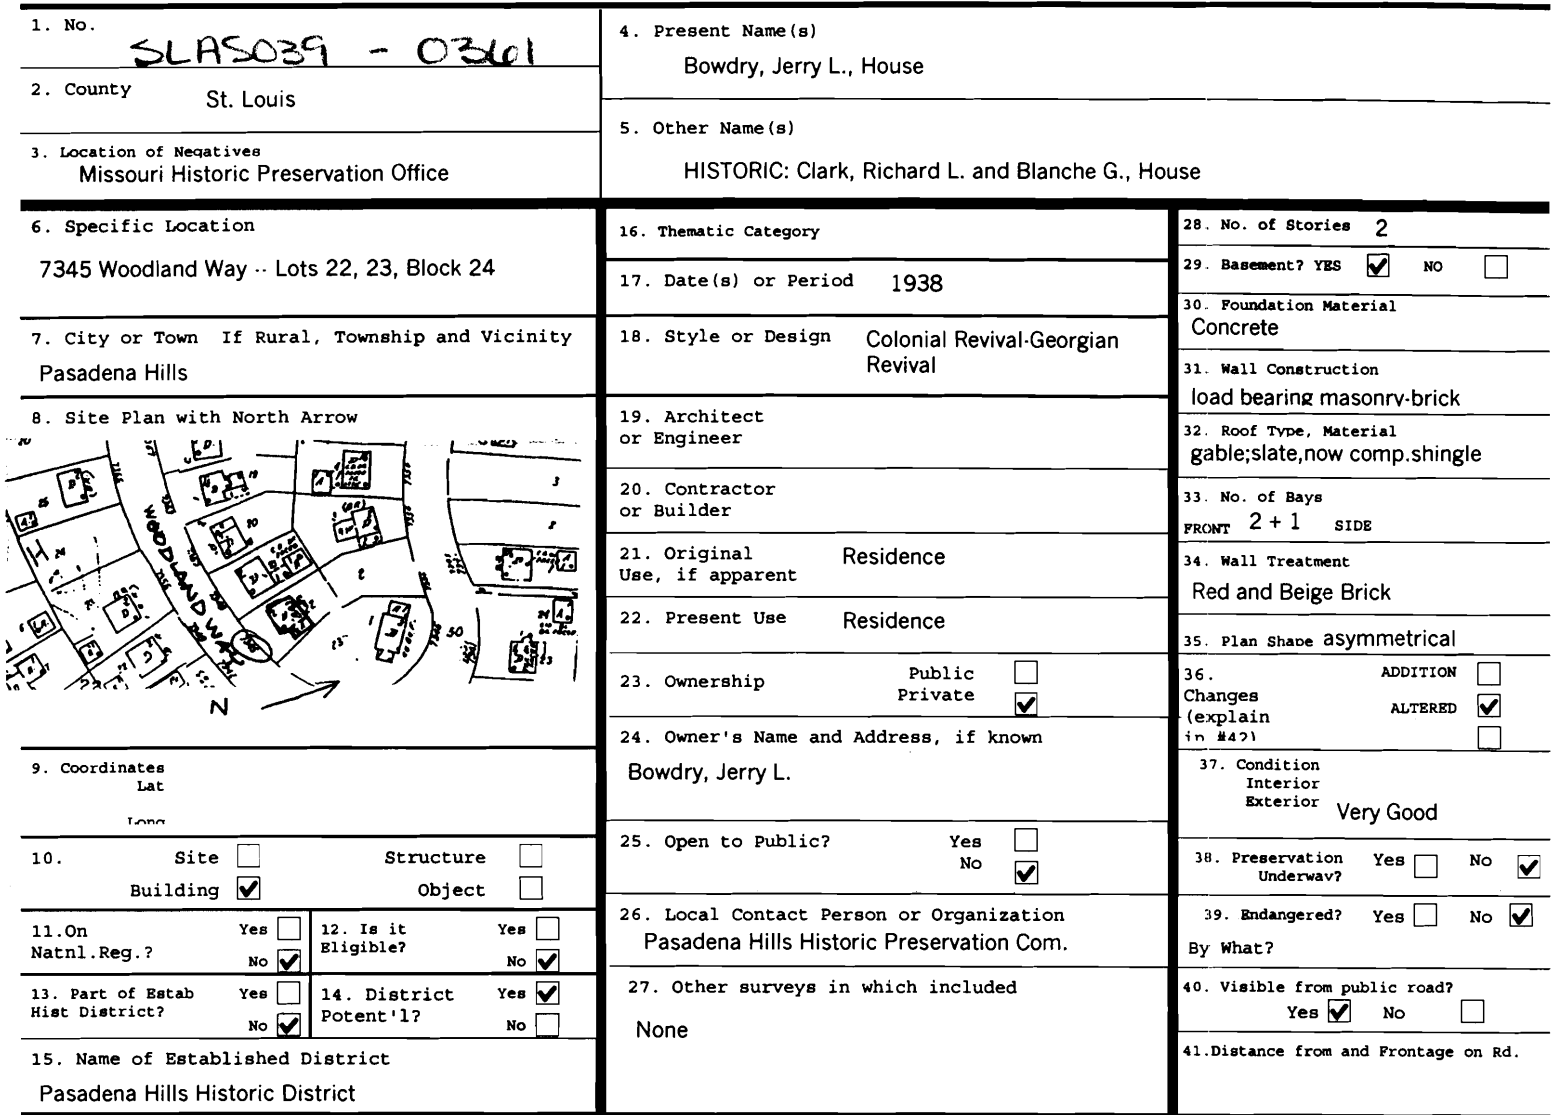 1. No.
SLAS039 - 0361
2. County
St. Louis
3. Location of Negatives
Missouri Historic Preservation Office
4. Present Name(s)
Bowdry, Jerry L., House
5. Other Name(s)
HISTORIC: Clark, Richard L. and Blanche G., House
6. Specific Location
7345 Woodland Way -- Lots 22, 23, Block 24
7. City or Town If Rural, Township and Vicinity
Pasadena Hills
8. Site Plan with North Arrow
WOODLAND WAY
N
9. Coordinates
Lat
Long
10. Site Structure
Building Object
11.On Natnl.Reg.? Yes
No
12. Is it Eligible? Yes
No
13. Part of Estab Hist District? Yes
No
14. District Potent'l? Yes
No
15. Name of Established District
Pasadena Hills Historic District
16. Thematic Category
17. Date(s) or Period 1938
18. Style or Design Colonial Revival-Georgian
Revival
19. Architect
or Engineer
20. Contractor
or Builder
21. Original Residence
Use, if apparent
22. Present Use Residence
23. Ownership Public
Private
24. Owner's Name and Address, if known
Bowdry, Jerry L.
25. Open to Public? Yes
No
26. Local Contact Person or Organization
Pasadena Hills Historic Preservation Com.
27. Other surveys in which included
None
28. No. of Stories 2
29. Basement? YES NO
30. Foundation Material
Concrete
31. Wall Construction
load bearing masonry-brick
32. Roof Type, Material
gable;slate,now comp.shingle
33. No. of Bays
FRONT 2 + 1 SIDE
34. Wall Treatment
Red and Beige Brick
35. Plan Shape asymmetrical
36. ADDITION
Changes
(explain ALTERED
in #42)
37. Condition
Interior
Exterior Very Good
38. Preservation Yes No
Underway?
39. Endangered? Yes No
By What?
40. Visible from public road?
Yes No
41.Distance from and Frontage on Rd.